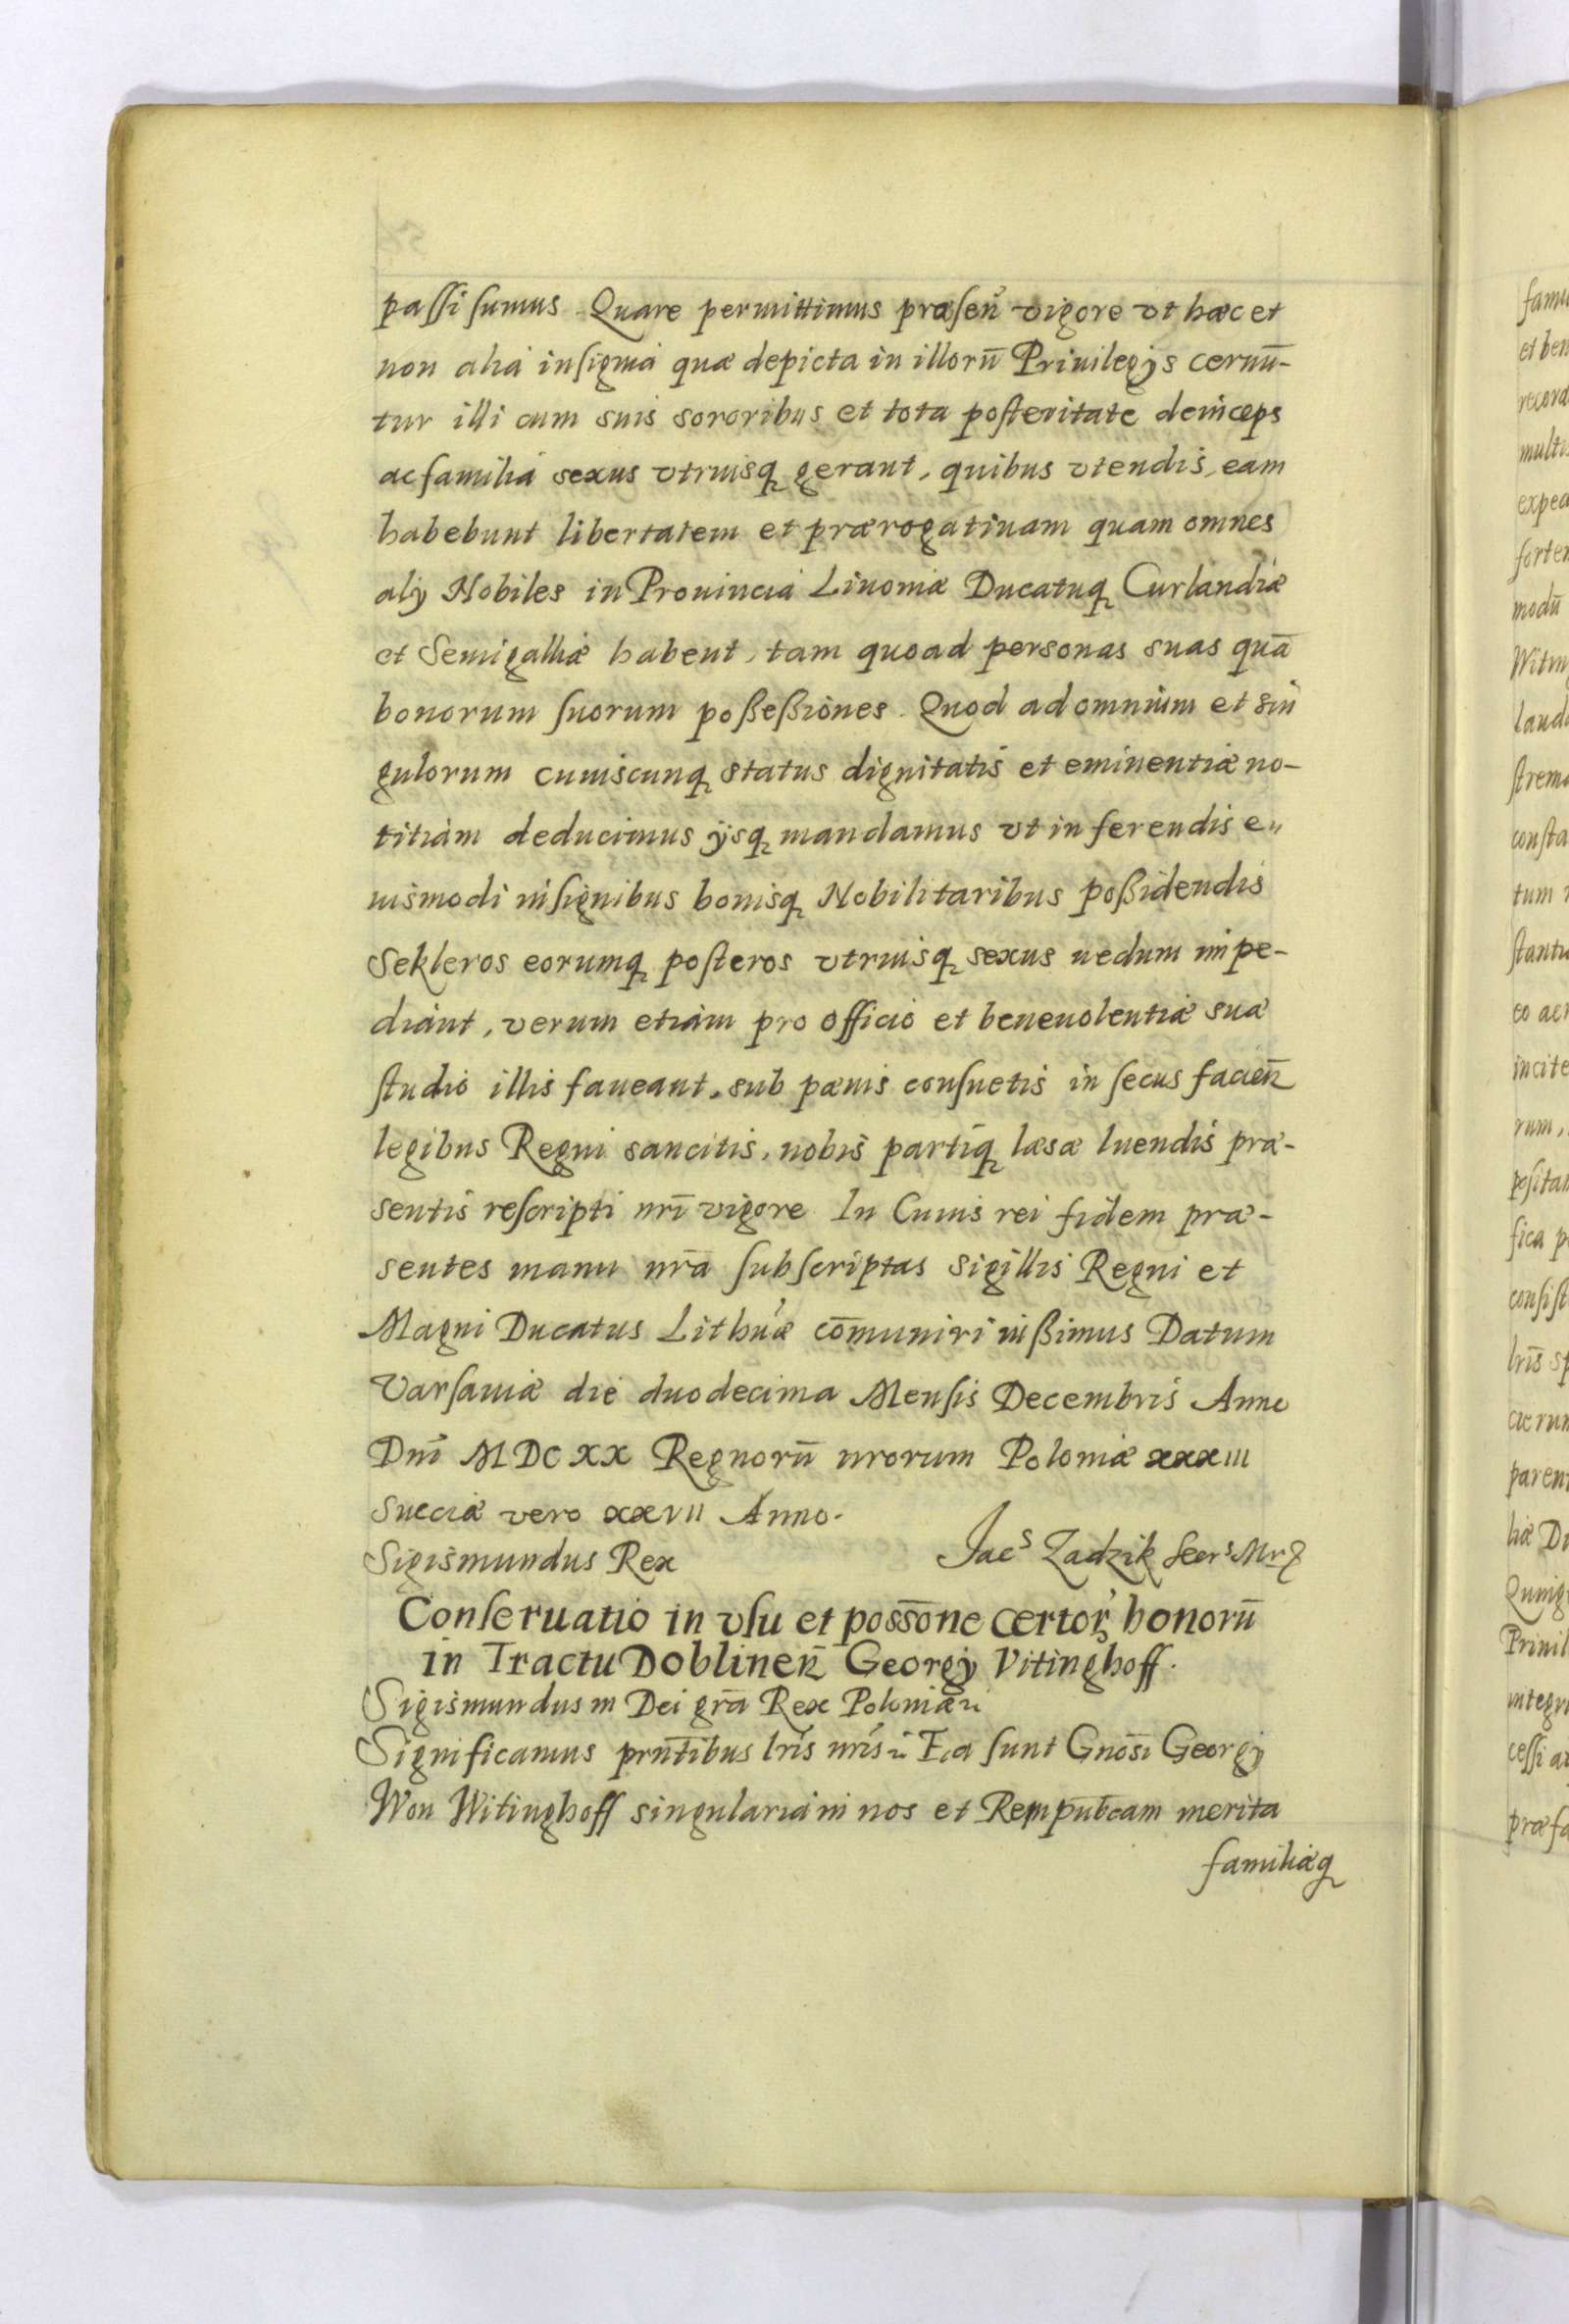 passi sumus. Quare permittimus præsen̄ vigore vt hæc et
non alia insignia quæ depicta in illorū Priuilegijs cernū-
tur illi cum suis sororibus et tota posteritate deinceps
ac familia sexus vtriusq gerant, quibus vtendis, eam
habebunt libertatem et prærogatiuam quam omnes
alij Nobiles in Prouincia Liuoniæ Ducatuq Curlandiæ
et Semigalliæ habent, tam quoad personas suas quā
bonorum suorum poßeßiones. Quod ad omnium et sin
gulorum cuiuscunq status dignitatis et eminentiæ no-
titiam deducimus ijsq mandamus vt in ferendis e„
iusmodi insignibus bonisq Nobilitaribus poßidendis
Sekleros eorumq posteros vtriusq sexus nedum impe-
diant, verum etiam pro officio et beneuolentiæ suæ
studio illis faueant, sub pænis consuetis in secus facien̄
legibus Regni sancitis, nobis partiq læsæ luendis præ-
sentis rescripti nrī vigore In Cuius rei fidem præ-
sentes manu nrā subscriptas sigillis Regni et
Magni Ducatus Lithu'æ cōmuniri iußimus Datum
Varsauiæ die duodecima Mensis Decembris Anno
Dnī MDCXX Regnorū nrorum Poloniæ xxxiii
Sueciæ vero xxvii Anno.
Sigismundus Rex Jacˢ Zadzik Secrˢ
Conseruatio in vsu et possōne certor̄ bonorū
in Tractu Doblinen̄ Georgij Vitinghoff.
Sigismundus III Dei grā Rex Poloniæ
Significamus prn̄tibus lrīs nrīs Ea sunt Gnōsi Georgij
Won Witinghoff singularia in nos et Rempūbcam merita
familiæq
famil
et ben
recorda
multi
expe
forte
modū
Witin
lauda
strem
consta
tum
stantu
eo ac
incite
rum,
posita
fica p
consist
lrīs sp
paren
liæ Du
Priuil
integr
cessi a
præfa